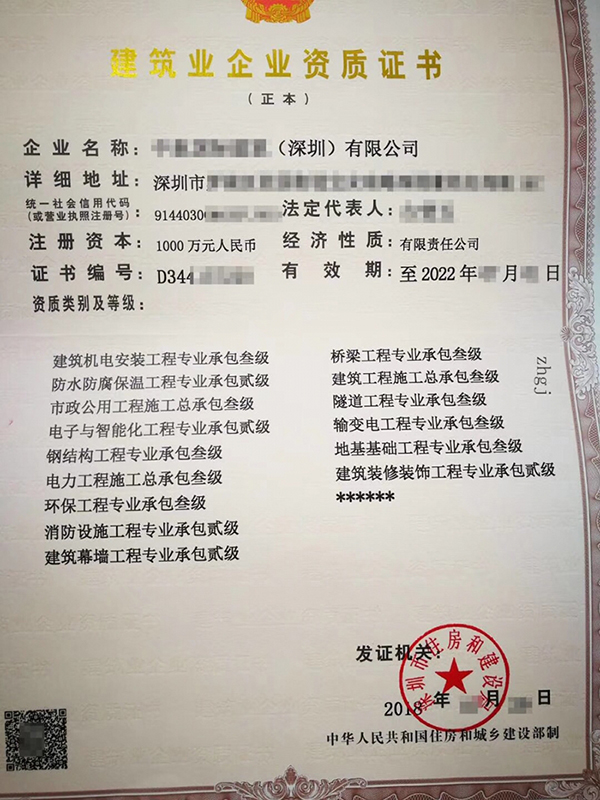 建筑业企业资质证书
（正本）
企业名称：（深圳）有限公司
详细地址：深圳市
统一社会信用代码
（或营业执照注册号）：9144030
法定代表人：
注册资本：1000万元人民币
经济性质：有限责任公司
证书编号：D344
有效期：至2022年 月 日
资质类别及等级：
建筑机电安装工程专业承包叁级
防水防腐保温工程专业承包贰级
市政公用工程施工总承包叁级
电子与智能化工程专业承包贰级
钢结构工程专业承包叁级
电力工程施工总承包叁级
环保工程专业承包叁级
消防设施工程专业承包贰级
建筑幕墙工程专业承包贰级
桥梁工程专业承包叁级
建筑工程施工总承包叁级
隧道工程专业承包叁级
输变电工程专业承包叁级
地基基础工程专业承包叁级
建筑装修装饰工程专业承包贰级
******
zhgj
发证机关：
深圳市住房和建设局
2018年 月 日
中华人民共和国住房和城乡建设部制